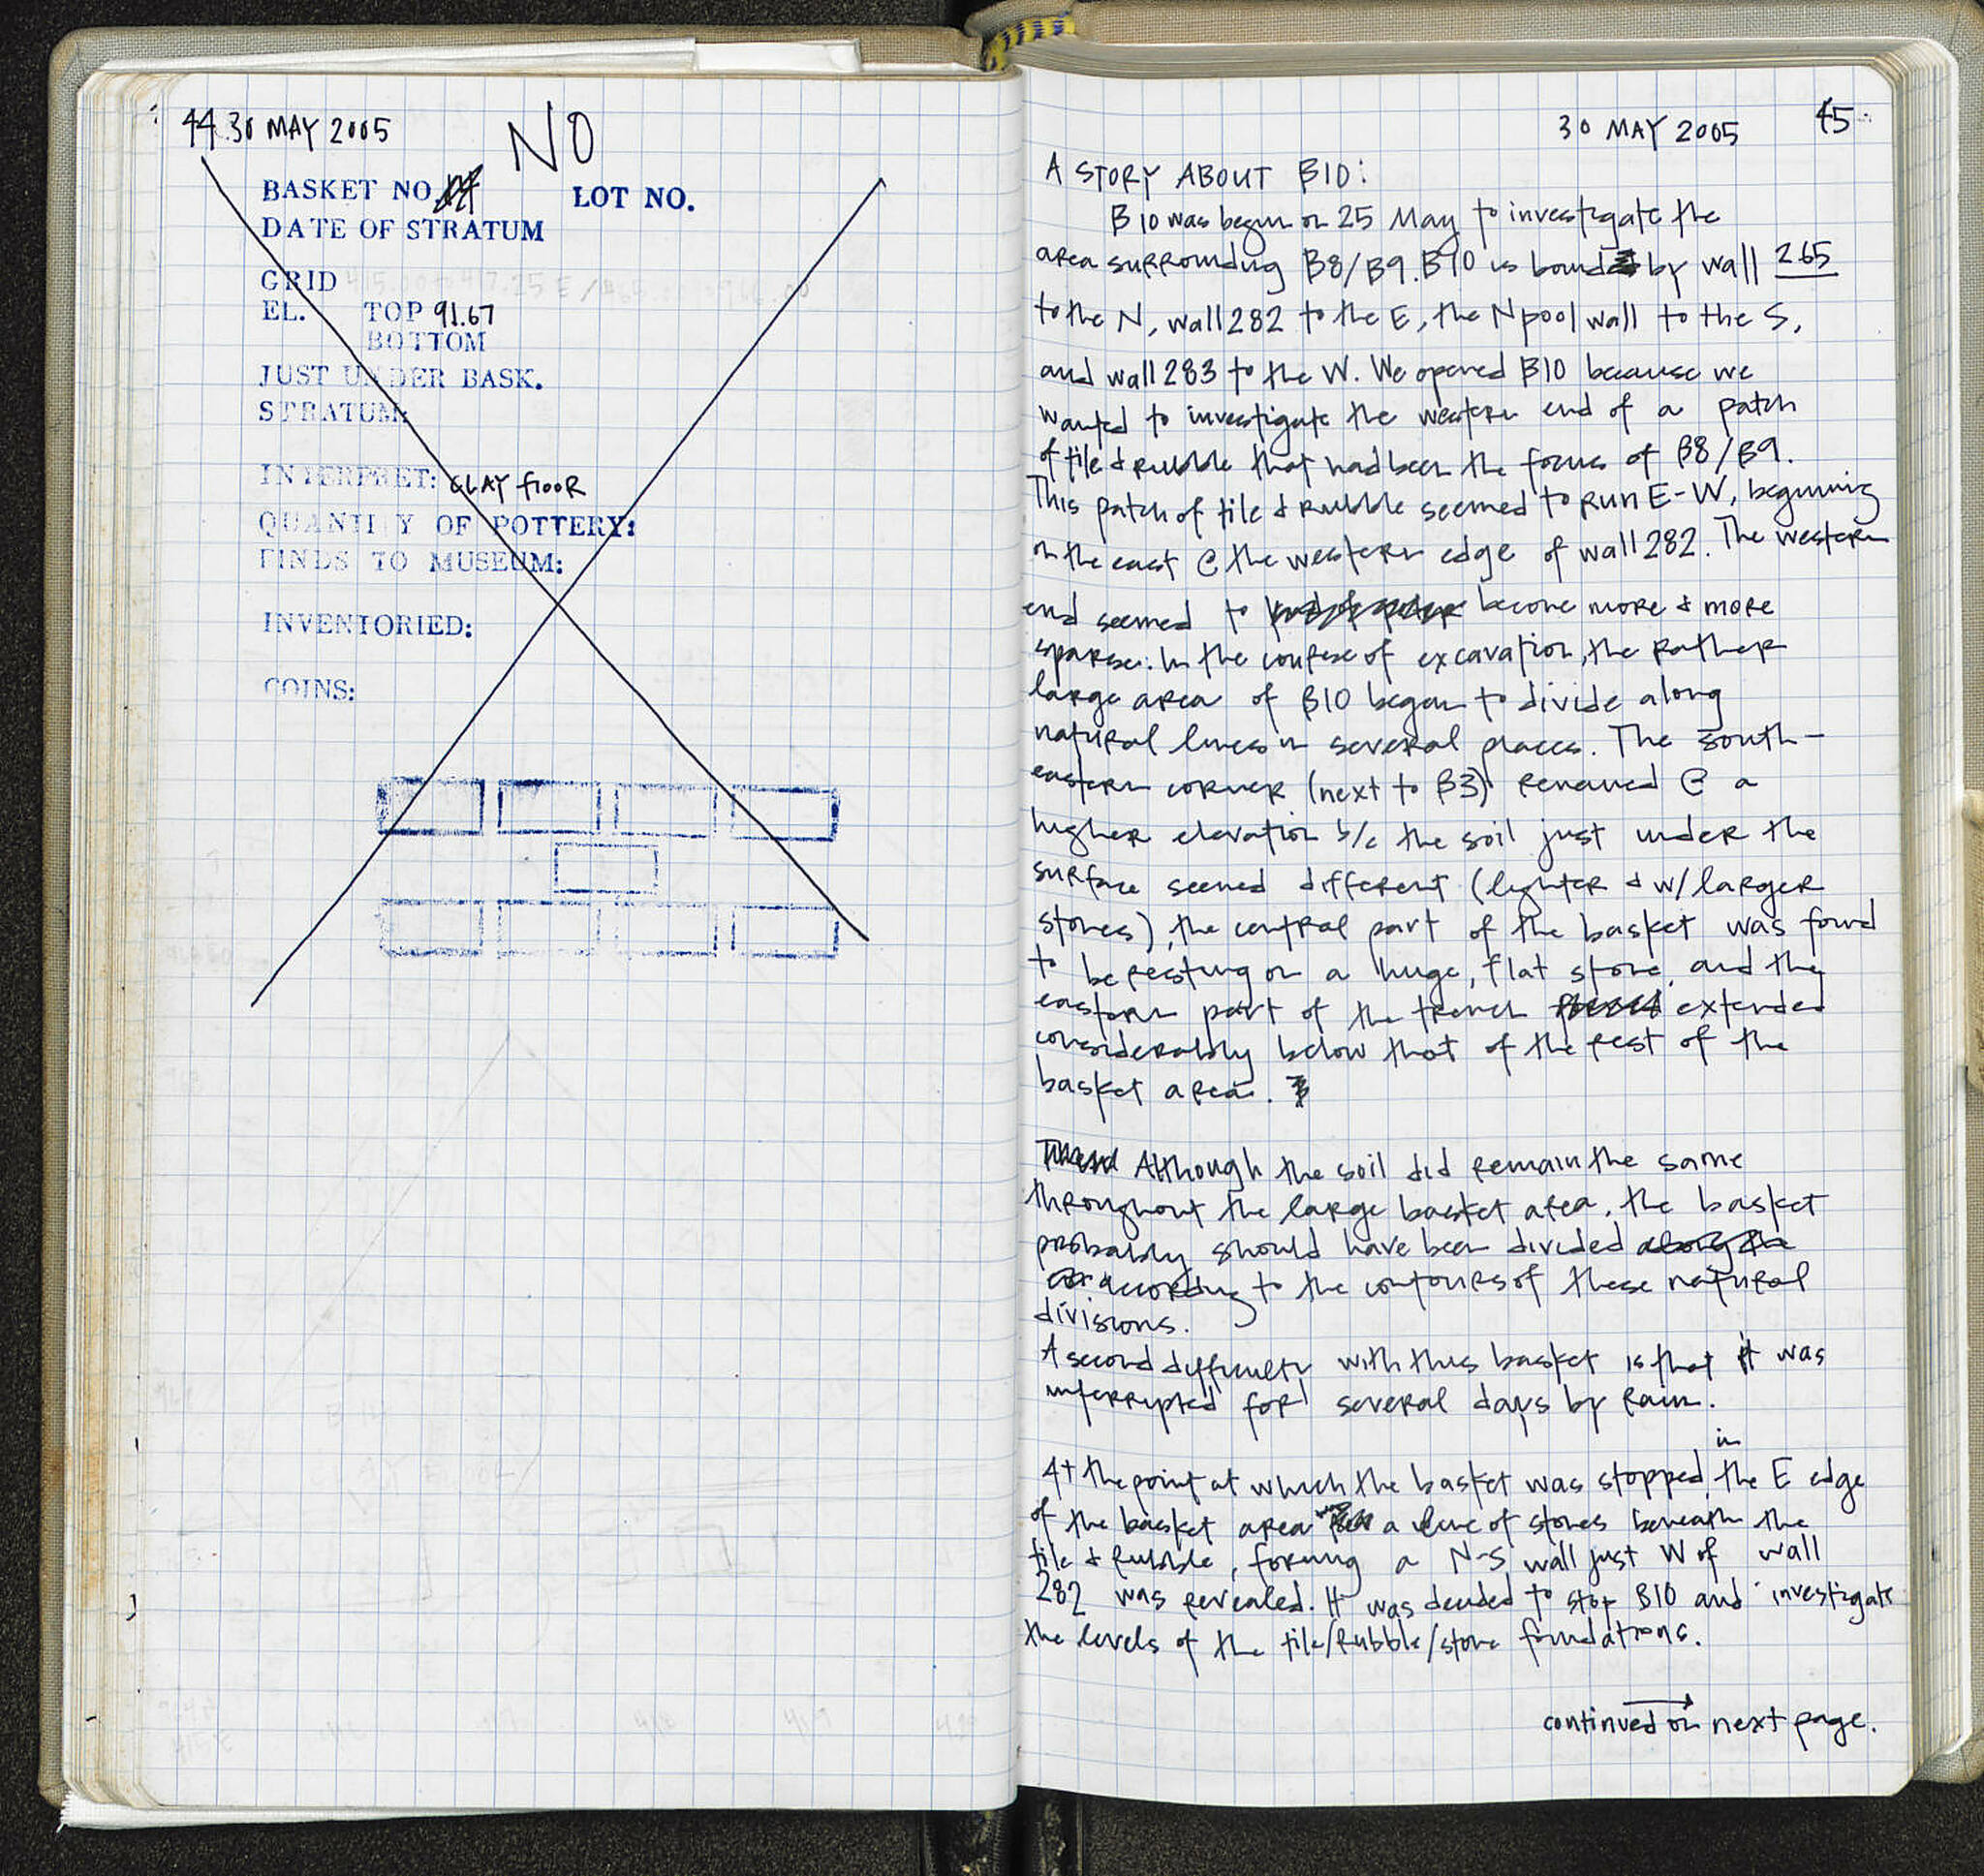 44. 30 MAY 2005
NO
BASKET NO. LOT NO.
DATE OF STRATUM
GRID
EL. TOP 91.67
BOTTOM
JUST UNDER BASK.
STRATUM:
INTERPRET: CLAY floor
QUANTITY OF POTTERY:
FINDS TO MUSEUM:
INVENTORIED:
COINS:
30 MAY 2005 45
A STORY ABOUT B10:
B10 was begun on 25 May to investigate the
area surrounding B8/B9. B10 is bound by wall 265
to the N, wall 282 to the E, the N pool wall to the S,
and wall 283 to the W. We opened B10 because we
wanted to investigate the western end of a patch
of tile & rubble that had been the focus of B8/B9.
This patch of tile & rubble seemed to run E-W, beginning
on the east @ the western edge of wall 282. The western
end seemed to become more & more
sparse. In the course of excavation, the rather
large area of B10 began to divide along
natural lines in several places. The south-
eastern corner (next to B3) remained @ a
higher elevation b/c the soil just under the
surface seemed different (lighter & w/ larger
stones), the central part of the basket was found
to be resting on a huge, flat stone, and the
eastern part of the trench extended
considerably below that of the rest of the
basket area.
Although the soil did remain the same
throughout the large basket area, the basket
probably should have been divided along the
according to the contours of these natural
divisions.
A second difficulty with this basket is that it was
interrupted for several days by rain.
At the point at which the basket was stopped, in the E edge
of the basket area a line of stones beneath the
tile & rubble, forming a N-S wall just W of wall
282 was revealed. It was decided to stop B10 and investigate
the levels of the tile/rubble/stone foundations.
continued on next page.